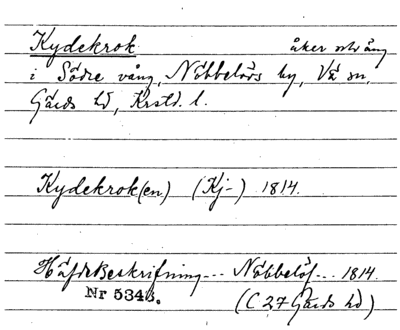 Kydekrok åker och äng
i Södre vång, Nöbbelövs by, Vä sn,
Gärds hd, Krstd. l.
Kydekrok(en) (Kj-) 1814.
HäfdeBeskrifning... Nöbbelöf... 1814.
Nr 5343.
(C 27 Gärds hd)